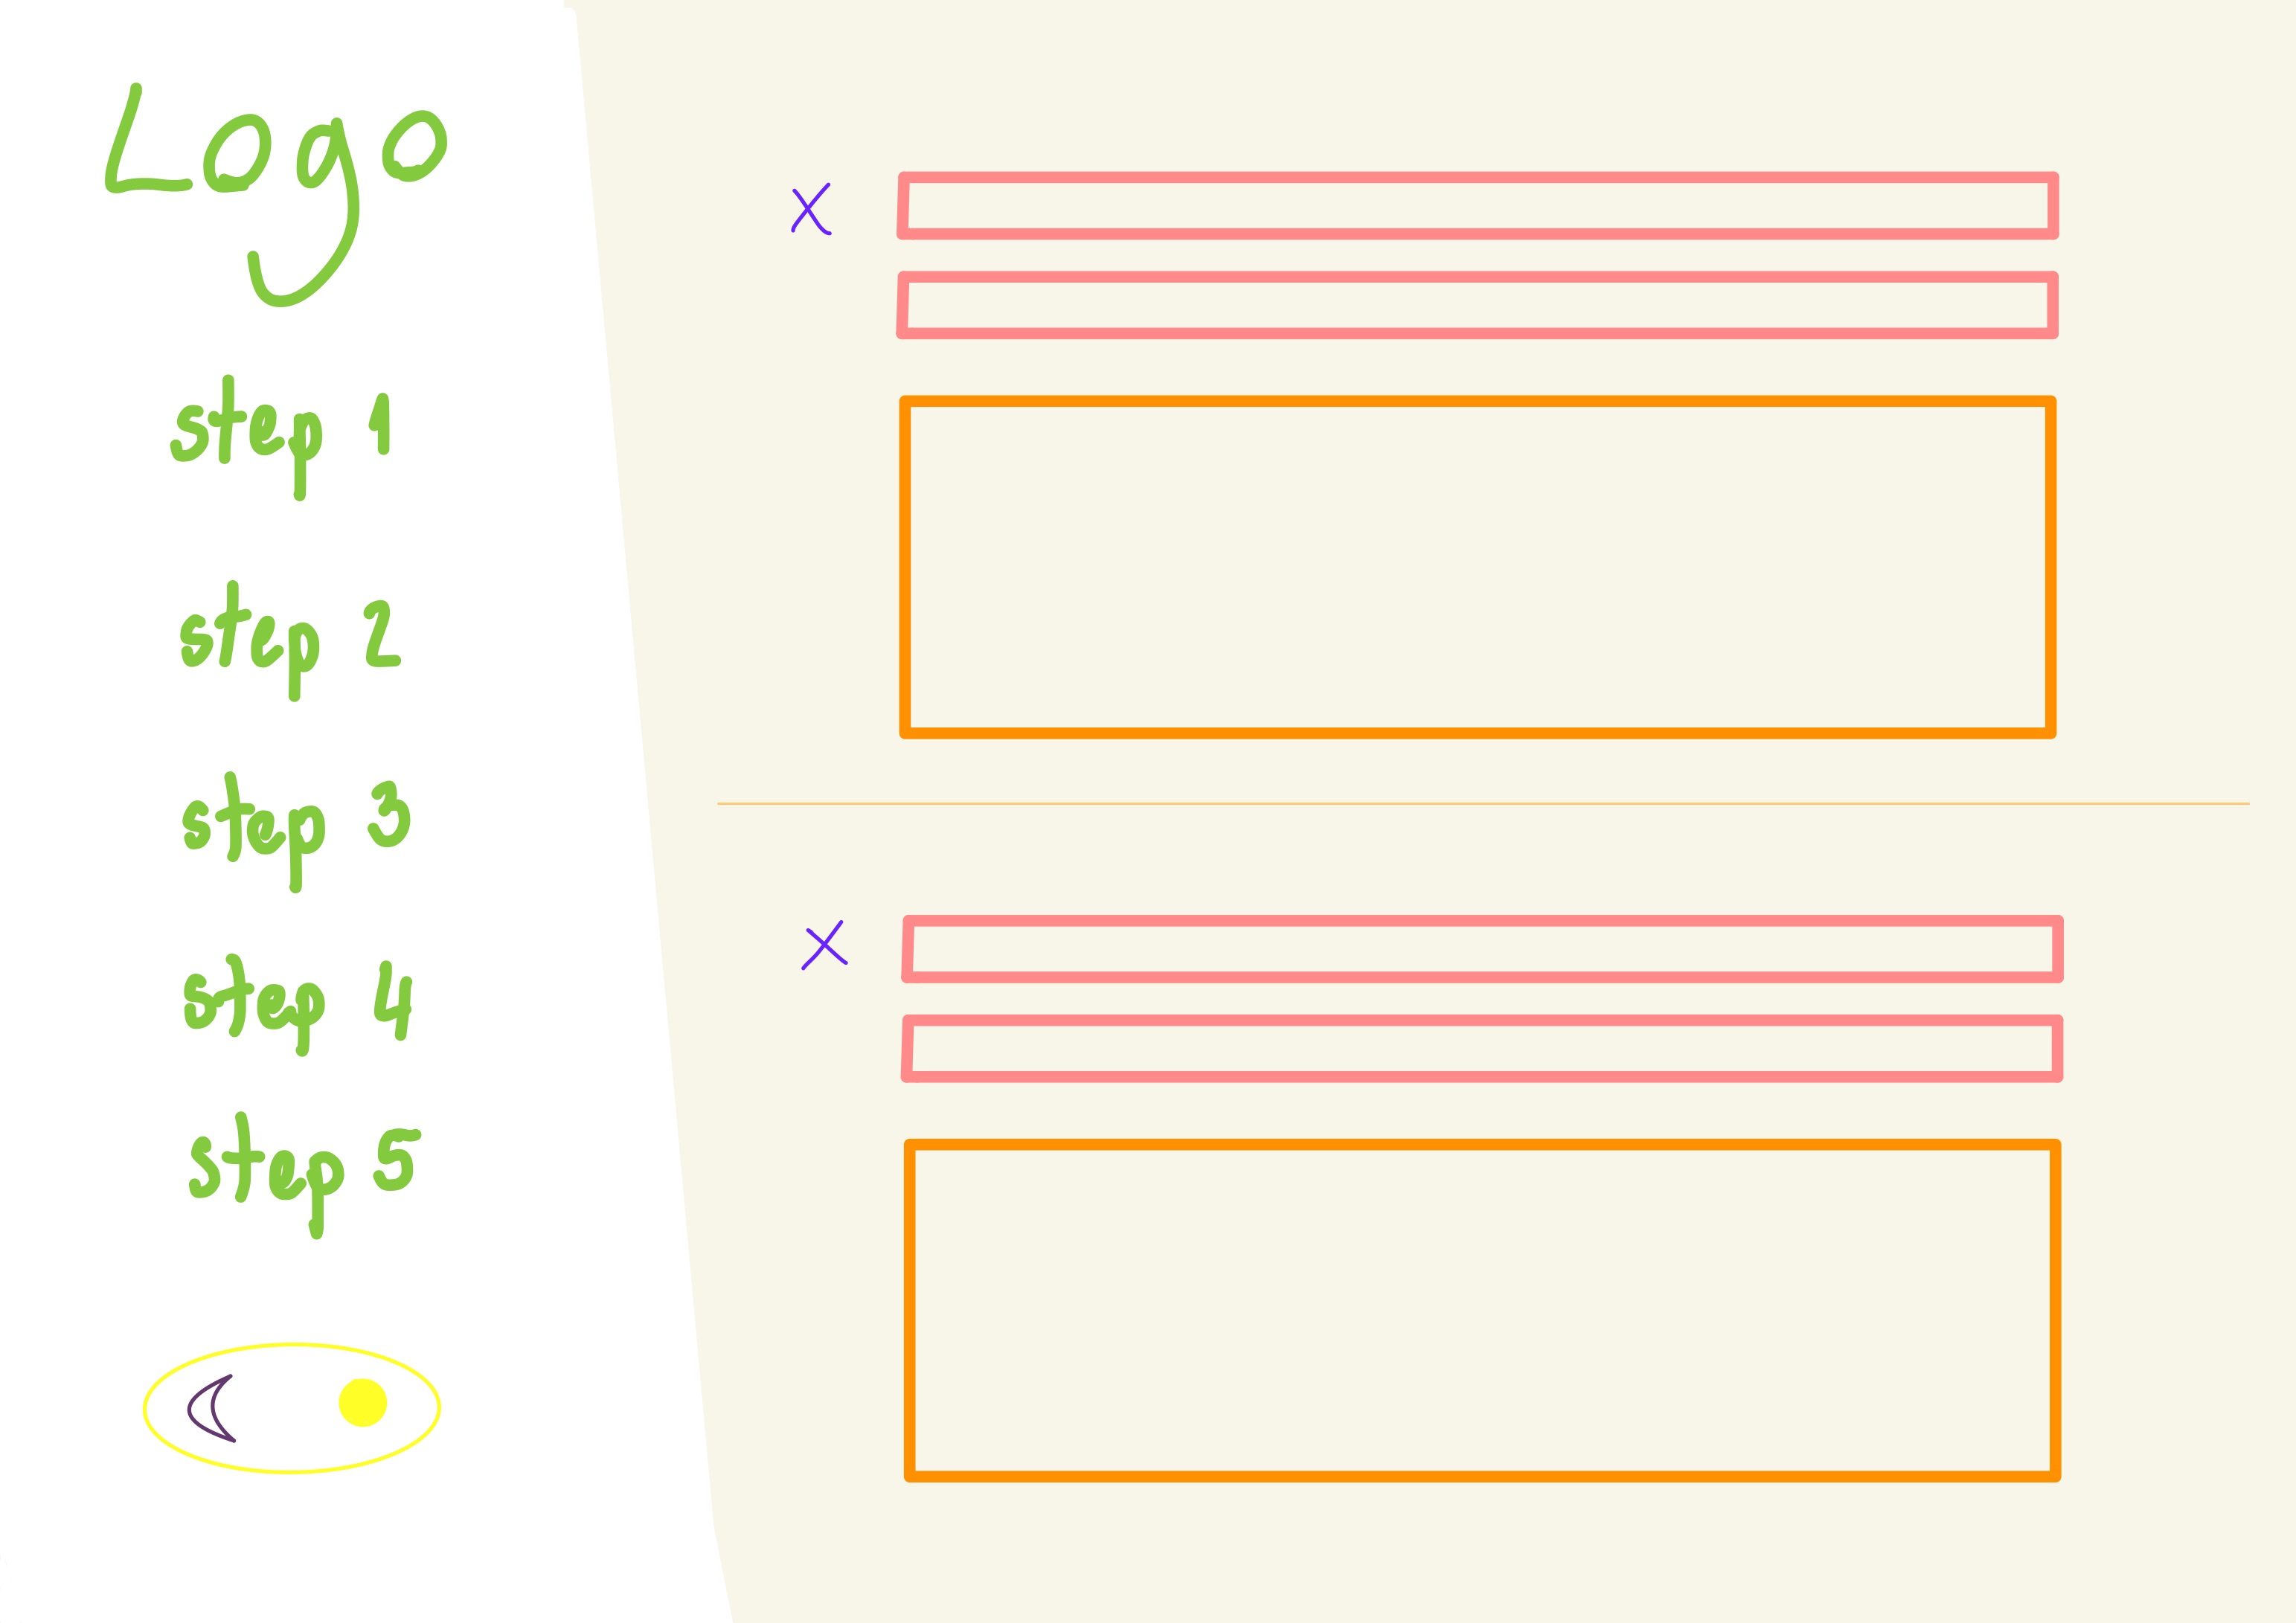 Logo
step 1
step 2
step 3
step 4
step 5
X
X